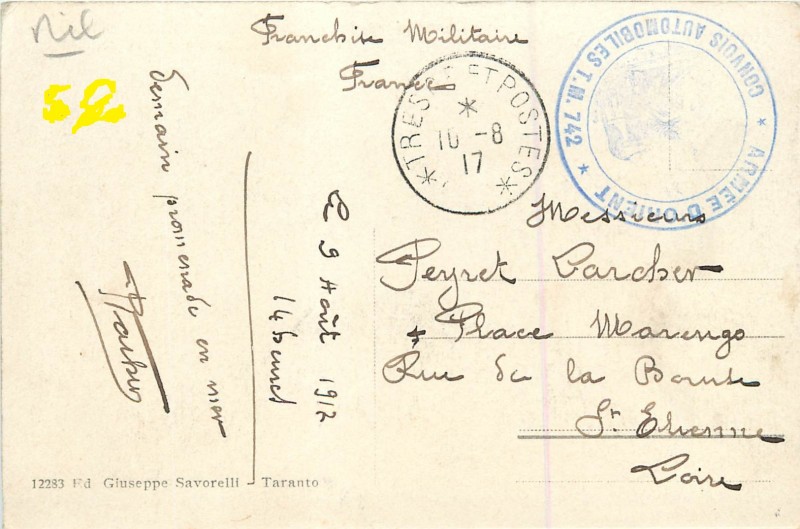 Nil
Franchise Militaire
France
TRESOR ET POSTES
10 - 8
17
CONVOIS AUTOMOBILES T.M. 742
ARMÉE D'ORIENT
Demain promenade en mer
Le 9 Août 1917
14 heures
Messieurs
Peyret Larcher
Place Marengo
Rue de la Bourse
St. Etienne
Loire
12283 Ed Giuseppe Savorelli - Taranto